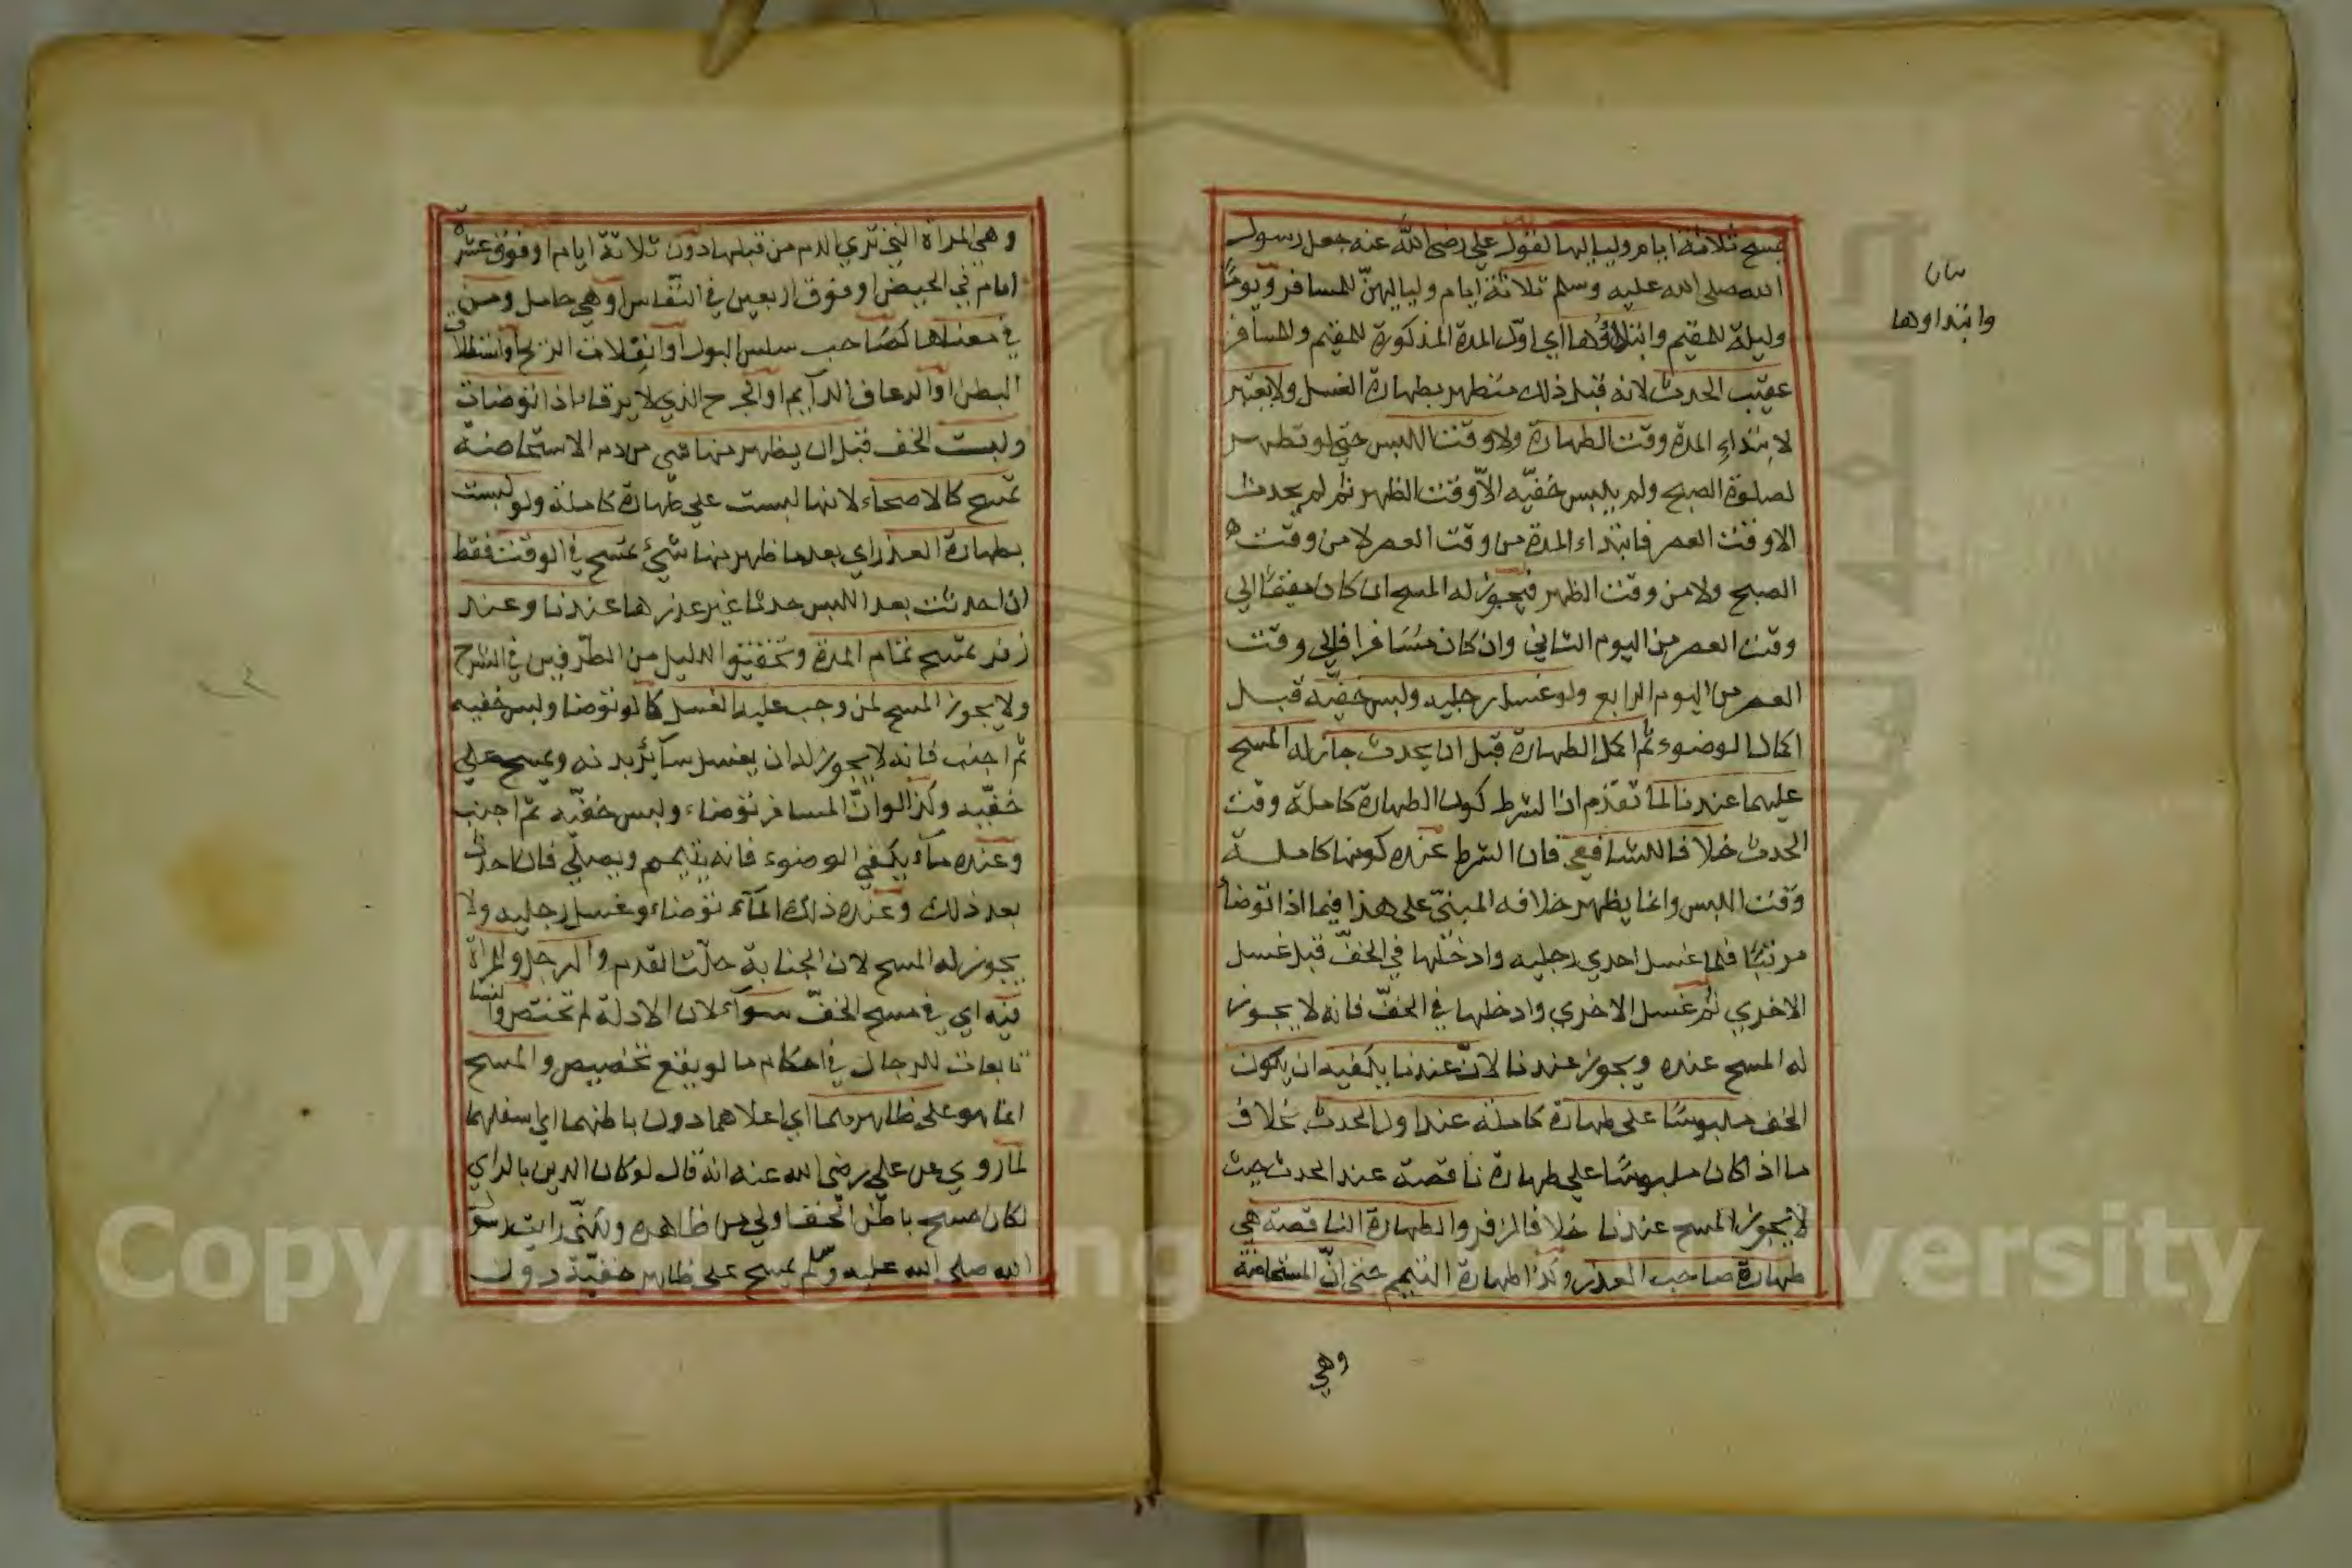 يمسح ثلاثة ايام ولياليها لقول علي رضي الله عنه جعل رسول
الله صلى الله عليه وسلم ثلاثة ايام ولياليهنّ للمسافر ويومًا
وليلة للمقيم وابتداؤها اي اوّل المدة المذكورة للمقيم وللمسافر
عقيب الحدث لانه قبل ذلك متطهر بطهارة الغسل ولا يعتبر
لابتداء المدة وقت الطهارة ولا وقت اللبس حتي لو تطهر
لصلوة الصبح ولم يلبس خفيّه الاّ وقت الظهر ثم لم يحدث
الا وقت العصر فابتداء المدة من وقت العصر لا من وقت
الصبح ولا من وقت الظهر فيجوز له المسح ان كان مقيمًا الي
وقت العصر من اليوم الثاني وان كان مسَافرا فالي وقت
العصر من اليوم الرابع ولو غسل رجليه ولبس خفيّه قبل
اكمال الوضوء ثم اكمل الطهارة قبل ان يحدث جاز له المسح
عليهما عندنا لما تقدّم ان الشرط كون الطهارة كاملة وقت
الحدث خلافا للشافعي فان الشرط عنده كونها كاملة
وقت اللبس وانما يظهر خلافه المبنيّ على هذا فيما اذا توضأ
مرتبًا فلما غسل احدي رجليه وادخلها في الخفّ قبل غسل
الاخري ثم غسل الاخري وادخلها في الخفّ فانه لا يجوز
له المسح عنده ويجوز عندنا لانّ عندنا يكفيه ان يكون
الخف ملبوسًا على طهارة كاملة عند اول الحدث بخلاف
ما اذا كان ملبوسًا علي طهارة ناقصة عند الحدث حيث
لا يجوز المسح عندنا خلافا لزفر والطهارة الناقصة هي
طهارة صاحب العذر وكذا طهارة التيمم حتى انّ المستحاضة
وهي
بيان
وابتداوها
وهي المراة التي تري الدم من قبلها دون ثلاثة ايام او فوق عشرة
ايام في الحيض او فوق اربعين في النفاس او هي حامل ومن
في معناها كصَاحب سلس البول او انفلات الريح او استطلاق
البطن او الرعاف الدآيم او الجرح الذي لا يرقا اذا توضات
ولبست الخف قبل ان يظهر منها شي من دم الاستحاضة
تمسح كالاصحاء لانها لبست علي طهارة كاملة ولو لبست
بطهارة العذر اي بعد ما ظهر منها شيئ تمسح في الوقت فقط
ان احدثت بعد اللبس حدثا غير عذرها عندنا وعند
زفر تمسح تمام المدة وتحقيق الدليل من الطرفين في الشرح
ولا يجوز المسح لمن وجب عليه الغسل كما لو توضا ولبس خفيه
ثم اجنب فانه لا يجوز له ان يغسل سآئر بدنه ويمسح علي
خفيّه وكذا لو انّ المسافر توضاء ولبس خفيّه ثم اجنب
وعنده مآء يكفي الوضوء فانه يتيمم ويصلي فان احدث
بعد ذلك وعنده ذلك المآء توضاء وغسل رجليه ولا
يجوز له المسح لان الجنابة حلّت القدم والرجل والمراة
فيه اي في مسح الخفّ سوآء لان الادلة لم تختص والنسا
تابعات للرجال في احكام ما لو يقع تخصيص والمسح
انما هو على ظاهرهما اي اعلاهما دون باطنهما اي اسفلهما
لما روي عن علي رضي الله عنه انه قال لو كان الدين بالراي
لكان مسح باطن الخف اولي من ظاهره ولكنّي رايت رسول
الله صلى الله عليه وسلم يمسح على ظاهر خفيّه دون